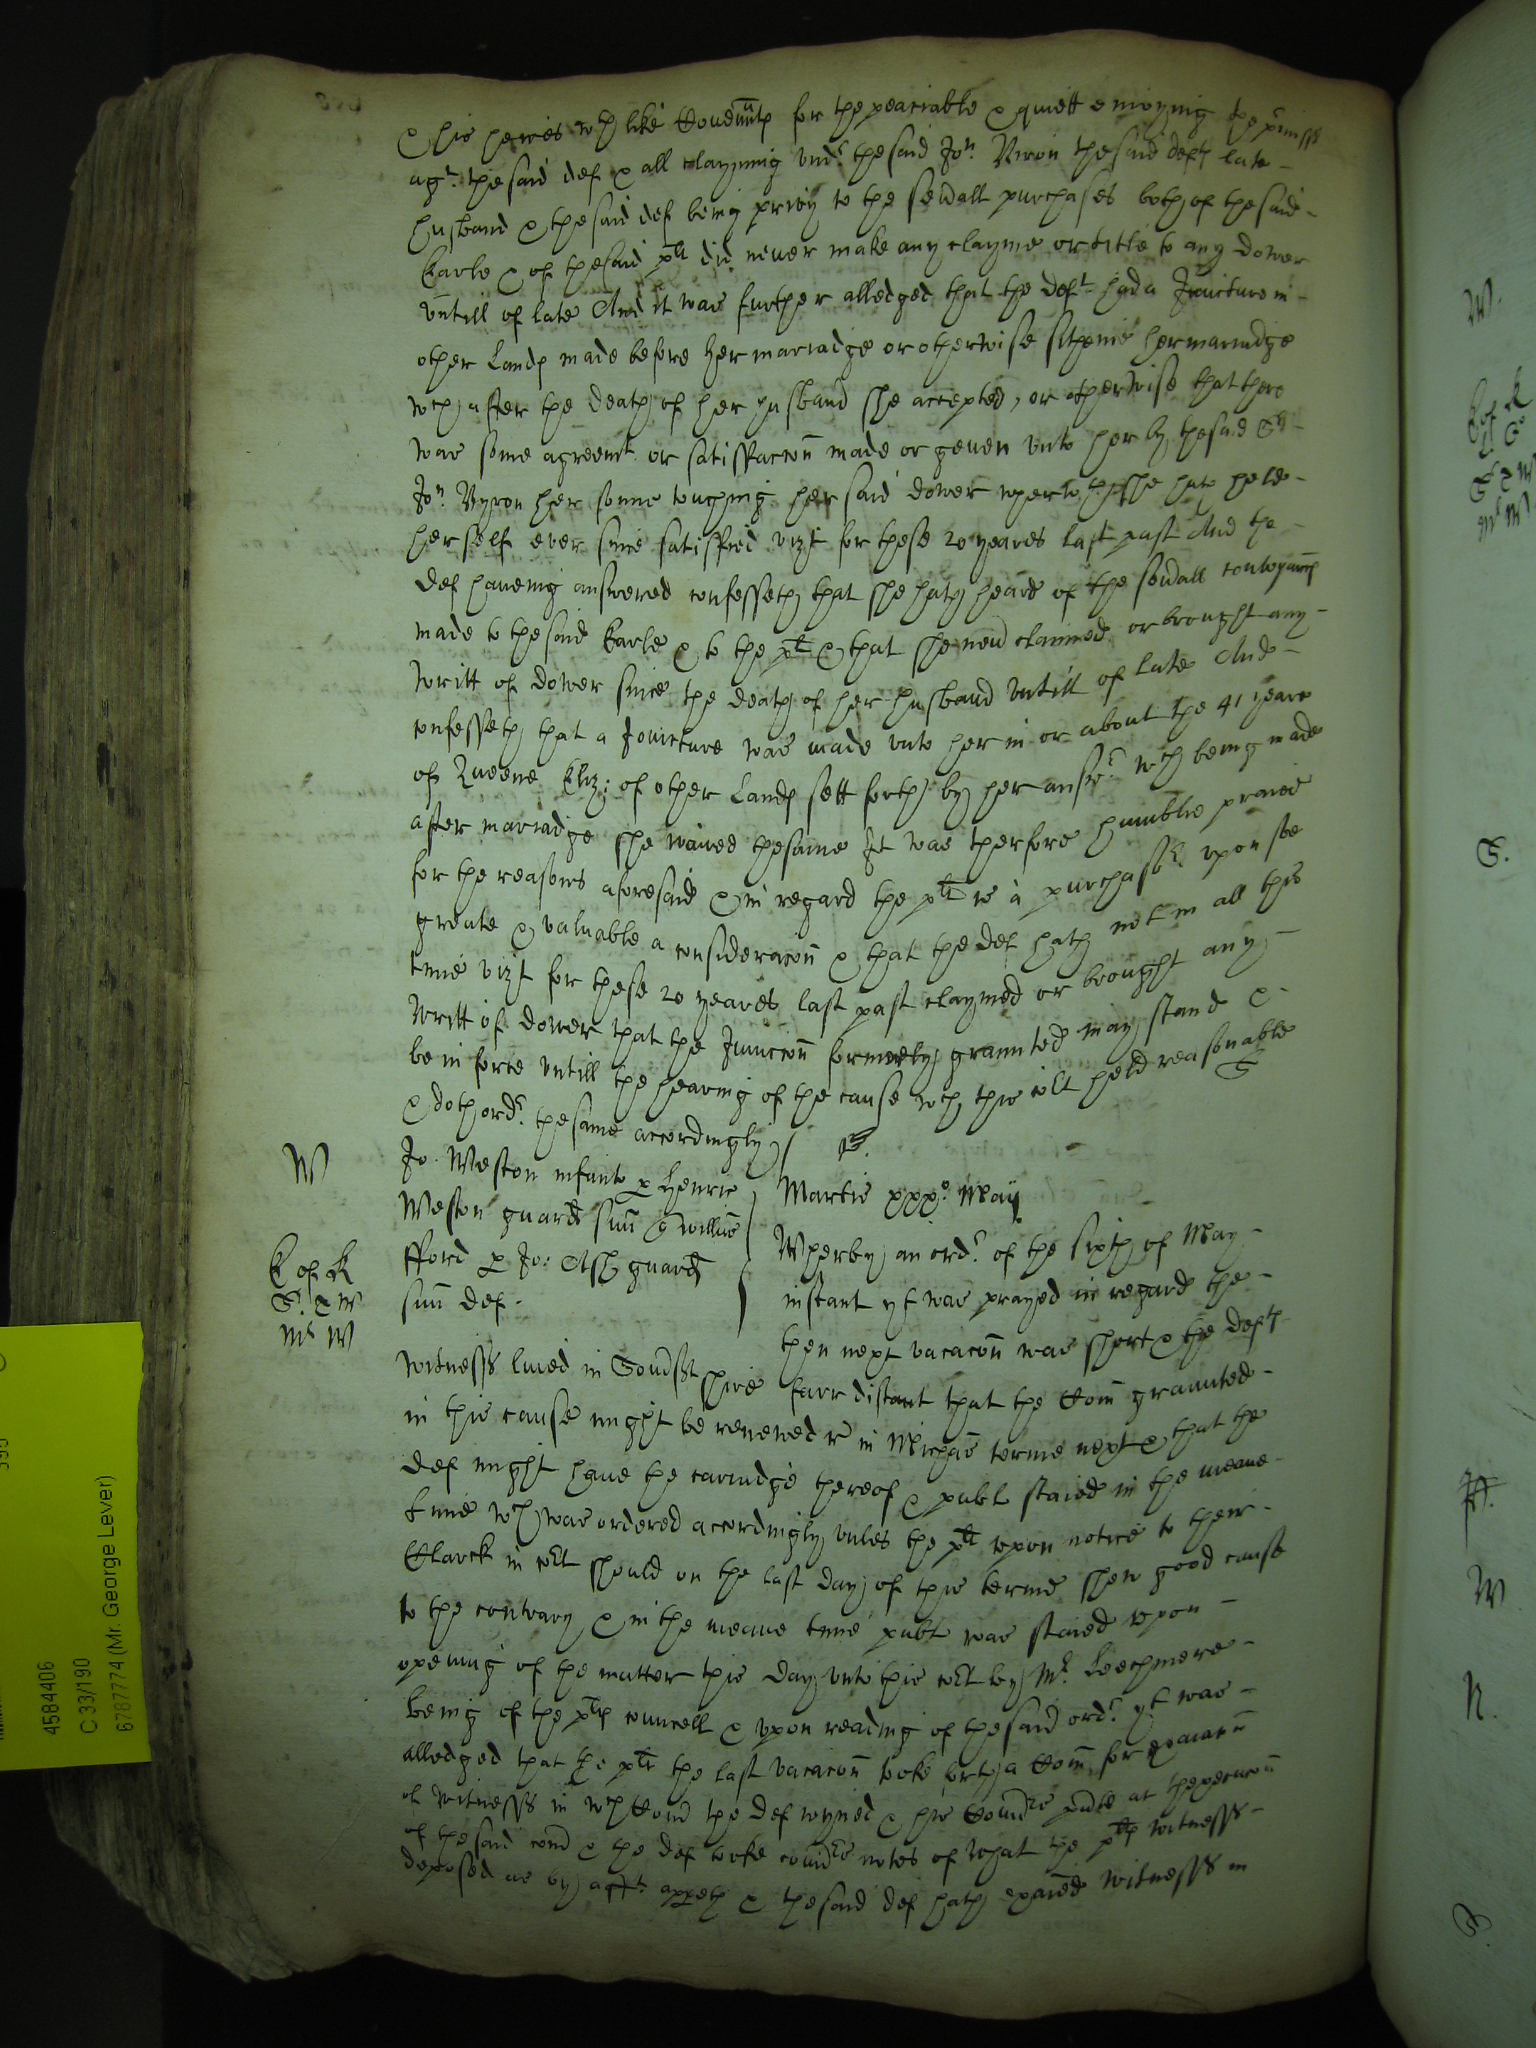 & his heires wth like Covennts for the peaceable & quiett enioying the pmisses
agt. the said def & all clayming undr the said Jon. Biron the said defts late
husband & the said def being privy to the sevall purchases both of the said
Earle & of the said plt did never make any clayme or title to any dower
untill of late And it was further alledged that the deft had a Jointure in
other Lands made before her marriadge or otherwise sithence her marriadge
wch after the death of her husband she accepted, or otherwise that there
was some agreemt. or satisfaccon made or geven unto her by the said Sr
Jon. Byron her sonne touching her said dower wherwth she hath held
herself ever since satisfied vizt for these 20 yeares last past And the
def haveing answered confesseth that she hath heard of the sevall convayances
made to the said Earle & to the plt & that she nevr claimed or brought any
writt of dower since the death of her husband untill of late And
confesseth that a Jointure was made unto her in or about the 41 yeare
of Queene Eliz: of other Lands sett forth by her answr wch being made
after marriadge she waived the same It was therfore humblie praied
for the reasons aforesaid & in regard the plt is a purchasr. upon soe
greate & valuable a consideracon & that the def hath not in all this
time vizt for these 20 yeares last past claymed or brought any
writt of dower that the Iniuncon formerly graunted may stand &
be in force untill the hearing of the cause wch this cort held reasonable
& doth ordr. the same accordingly
W
Jo. Weston infante p Henric
Weston guard suu q Willm
fford p Jo: Ash guard
suu def.
Martis xxxo. Maij
E of K
S. & W
Mr W
Wherby an ordr. of the sixth of May
instant yt was prayed in regard the
then next vacacon was short & the defts
witnesses lived in Somsett shire farr distant that the Com graunted
in this cause might be renewed r in Michas terme next & that the
def might have the carriadge thereof & publ staied in the meane
time wch was ordered accordingly unles the plt upon notice to their
Clarck in cort should on the last day of this terme shew good cause
to the contrary & in the meane time publ was staied upon
opening of the matter this day unto this cort by Mr. Leechmere
being of the plts councell & upon reading of the said ordr. yt was
alledged that the plt the last vacacon tooke forth a Com for exaiacon
of witnesses in wch Com the def ioyned & his Comrs at the execucon
of the said com & the def tooke notes of what the plts witnesses
deposed as by afft. appeth & the said def hath exaied witnesses in
4584406
C 33/190
6787774 (Mr. George Lever)